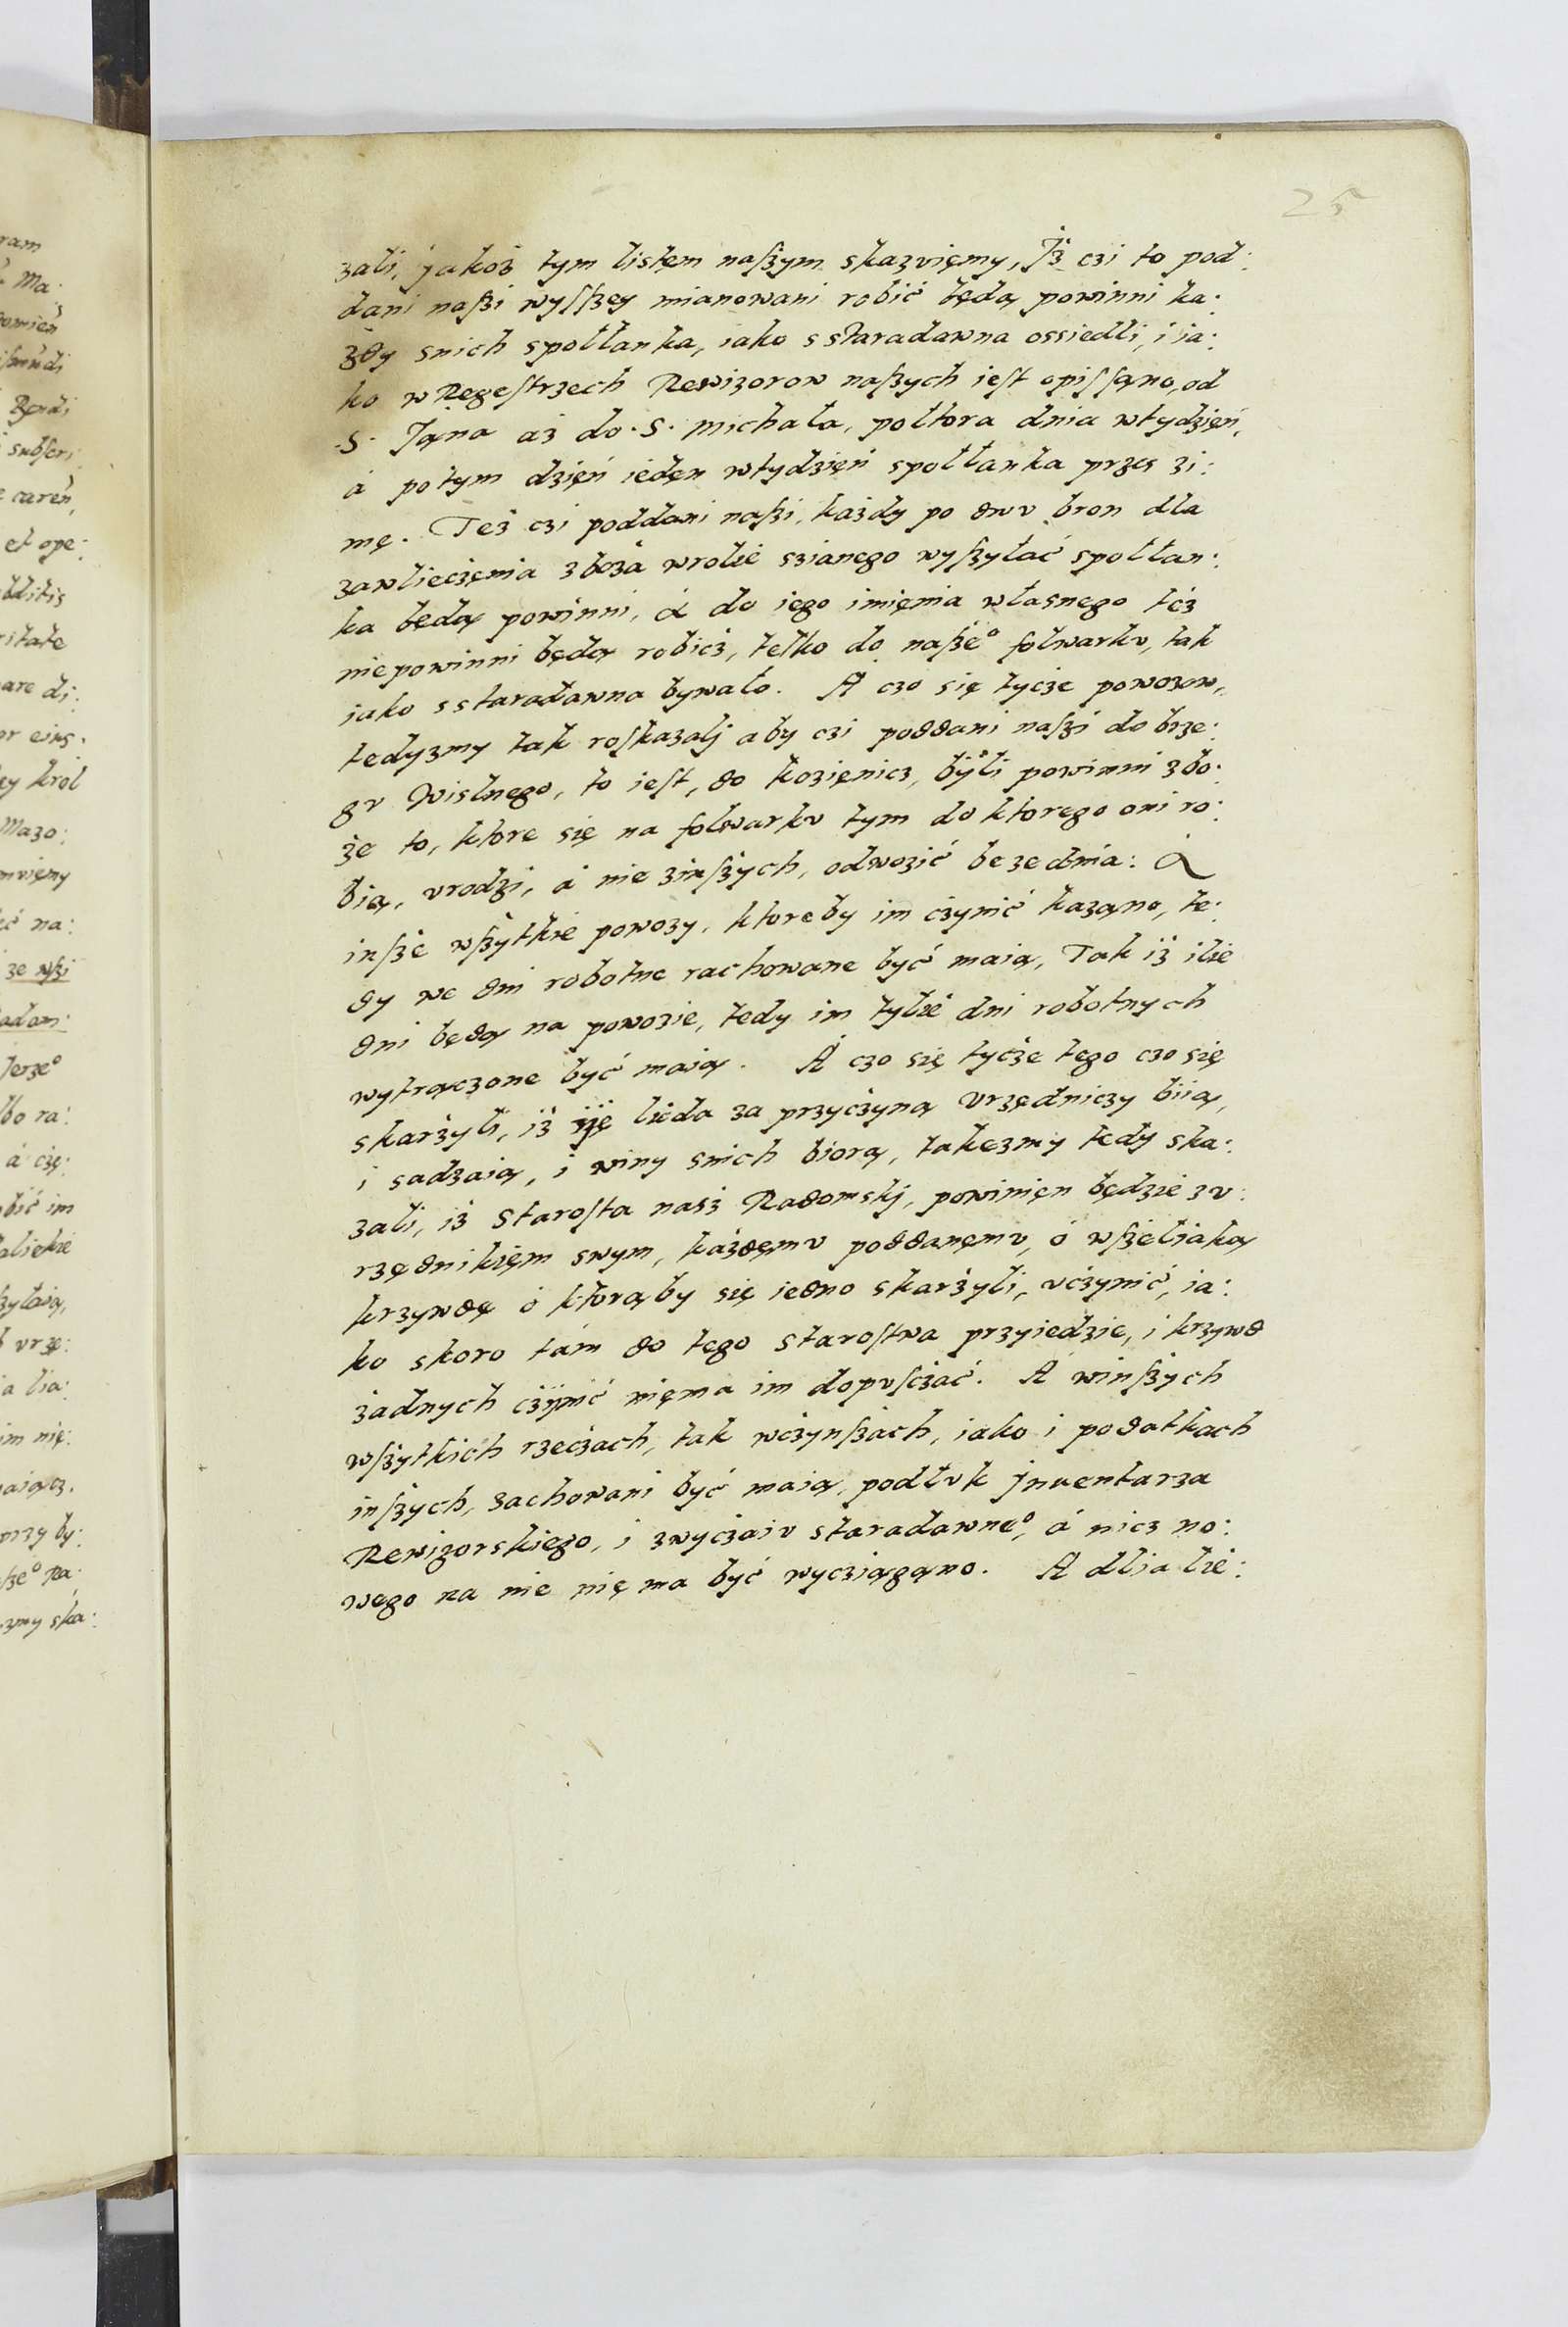 25
zali, jakoż tym listęm naßzym skazvięmy, Jż czi to pod:
dani naßzi wyſſzey mianowani robić będą powinni ka:
żdy snich społłanka, iako sstaradawna ossiedli, i ia:
ko w Regeſtrzech Rewizorow naßzych ieſt opiſſąno, od
.S. Jąna aż do .S. Michała, połtora dnia wtydzięń,
á potym dzięń iedęn wtydzięń społłanka przes zi:
mę. Też czi poddani naßzi, każdy po dwv bron dla
zawlieczęnia zboża wrolie szianego wyſżyłać społłan:
ka będą powinni, á do iego imięnia własnego też
niepowinni będą robicz, telko do naßze° folwarkv, tak
iako sstaradawna bywało. A czo się tycze powozow,
tedyzmy tak roſkazalj aby czi poddani naßzi do brze:
gv Wislnego, to ieſt, do Kozięnicz, byli powinni zbo:
że to, ktore się na folwarkv tym do ktorego oni ro:
bią, vrodzi, á nie zinſżych, odwozić bezednia: A
inſże wſżytkie powozy, ktoreby im czynić kaząno, te:
dy we dni robotne rachowane być maią, Tak iż ilie
dni będą na powozie, tedy im tylie dni robotnych
wytrączone być maią. A czo się tycże tego czo się
skarżyli, iż ije lieda za przyczyną vrzędniczy biią,
i sadzaią, i winy snich biorą, takezmy tedy ska:
zali, iż Staroſta nasż Radomskj, powinięn będzie zv:
rzędnikięm swym, każdęmv poddanęmv, ó wſżeliaką
krzywdę ó ktorąby się iedno skarżyli, vczynić, ia:
ko skoro tám do tego staroſtwa przyiedzie, i krzywd
żadnych czynić nięma im dopvſczać. A winſżych
wſżytkich rzeczach, tak wczynſżach, iako i podatkach
inſżych, zachowani być maią, podłvk jnuentarza
Rewizorskiego, i zwyczaiv staradawne°, á nicz no:
wego na nie nię ma być wycziągąno. A dlia lie: